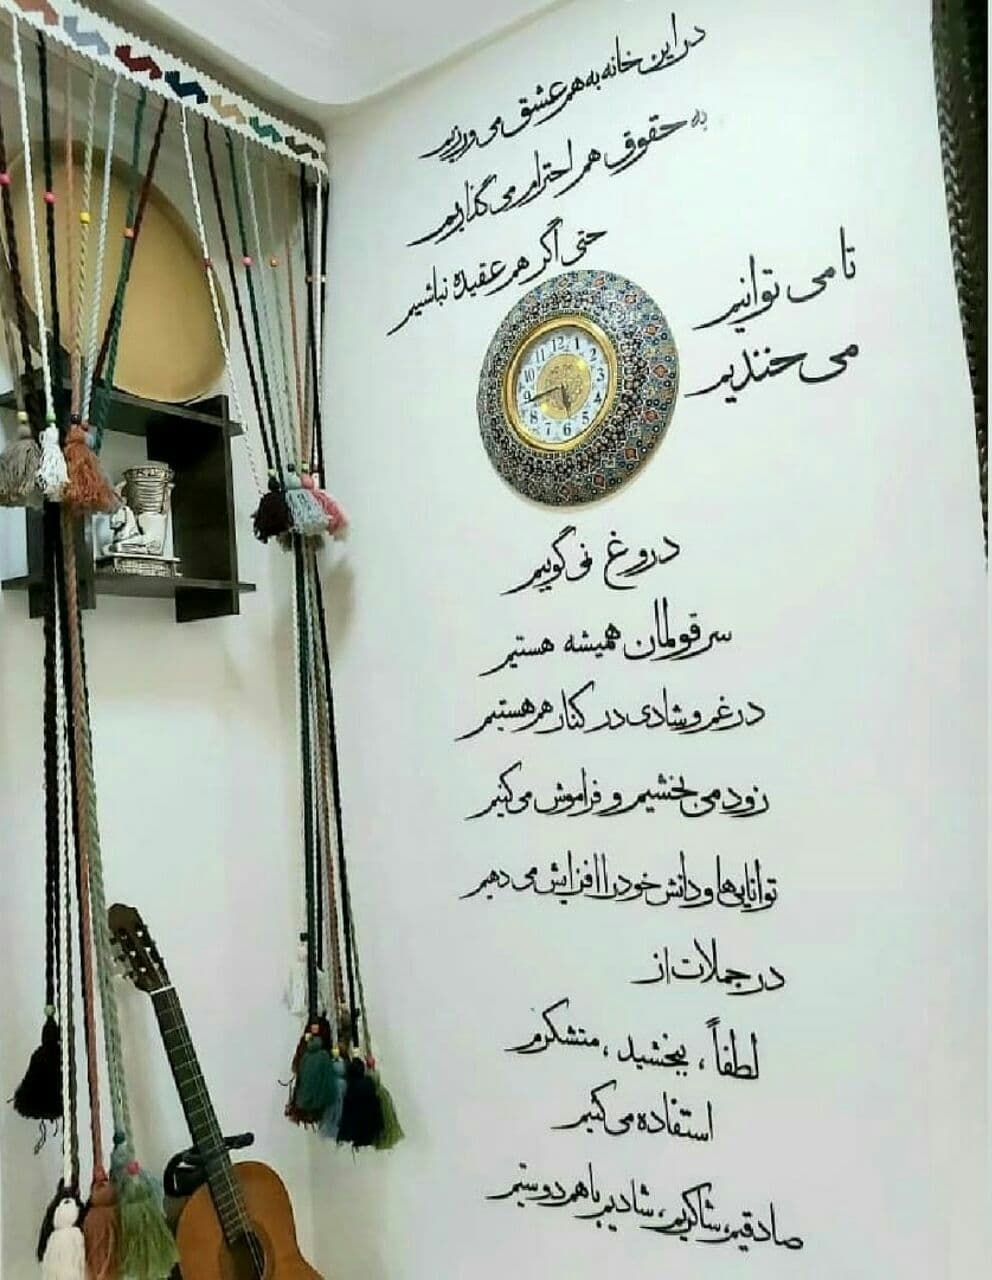 در این خانه به هم عشق می ورزیم
به حقوق هم احترام می گذاریم
حتی اگر هم عقیده نباشیم
تا می توانیم
می خندیم
12
1
2
3
4
5
6
7
8
9
10
11
دروغ نمی گوییم
سر قولمان همیشه هستیم
در غم و شادی در کنار هم هستیم
زود می بخشیم و فراموش می کنیم
توانایی ها و دانش خود را افزایش می دهیم
در جملات از
لطفاً ، ببخشید ، متشکرم
استفاده می کنیم
صادقیم، شاکریم، شادیم با هم دوستیم